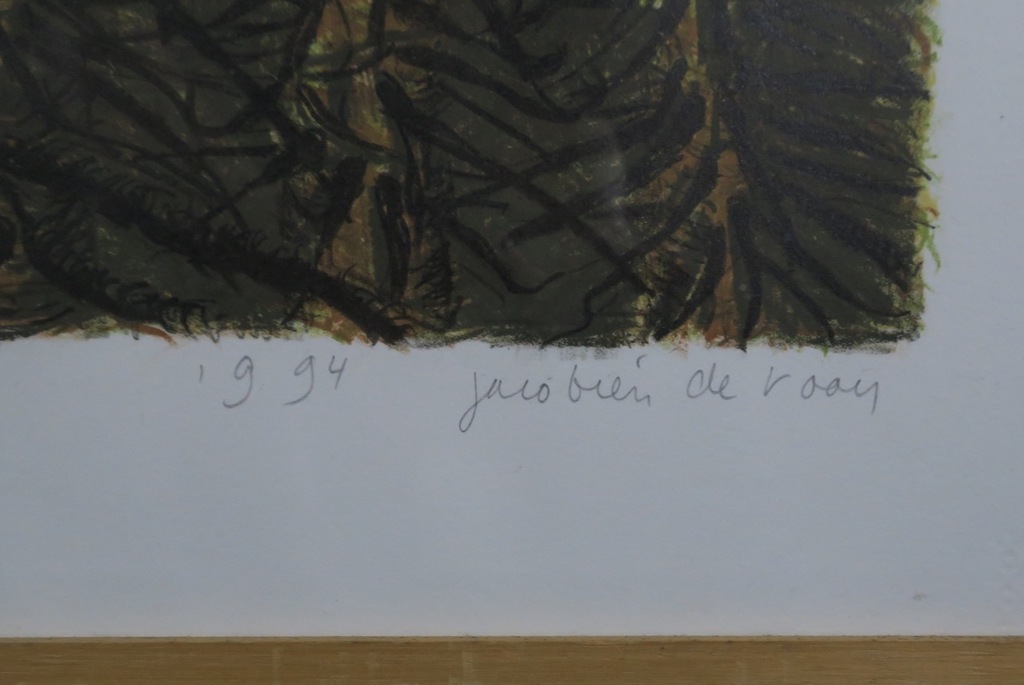 1994 jacobien de rooij